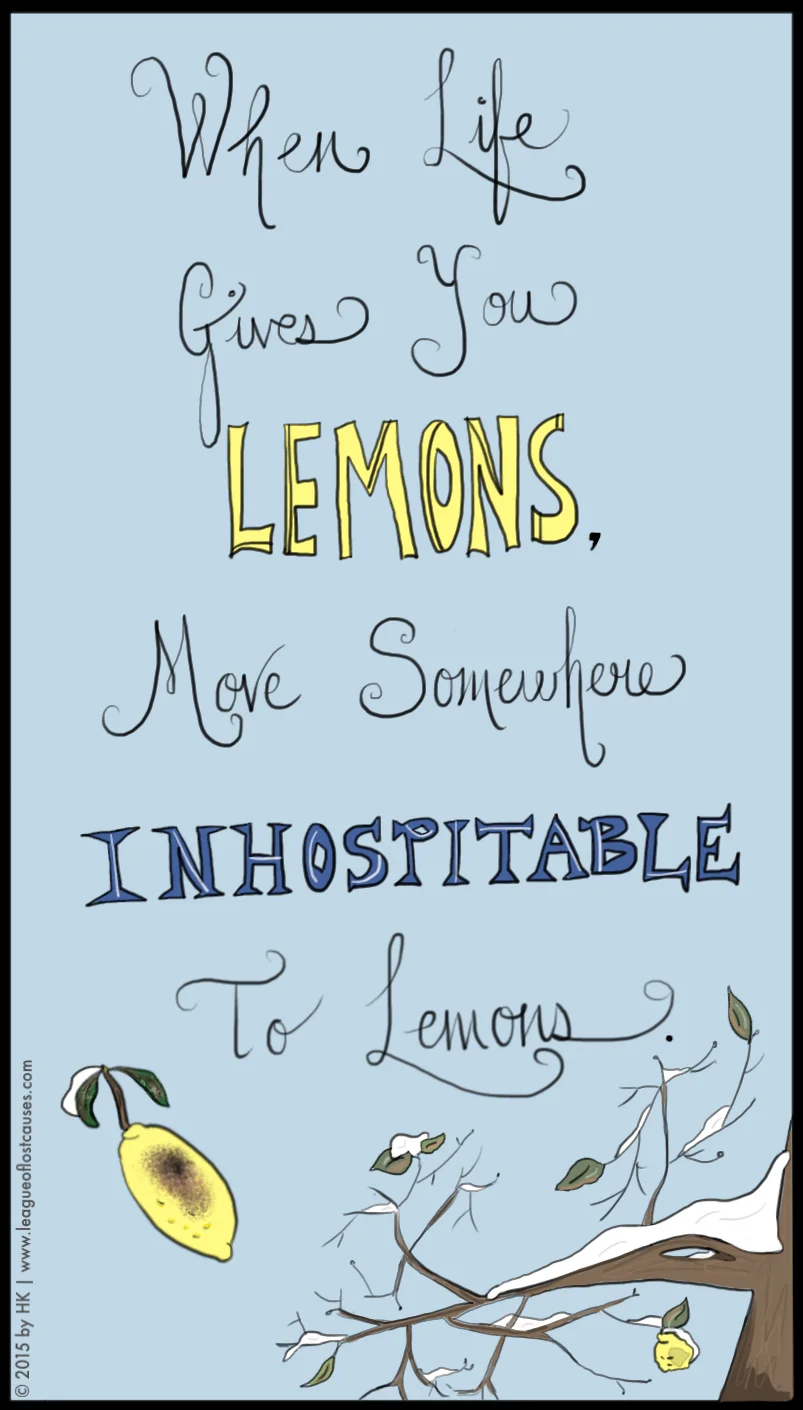 When Life
Gives You
LEMONS,
Move Somewhere
INHOSPITABLE
To Lemons.
© 2015 by HK | www.leagueoflostcauses.com